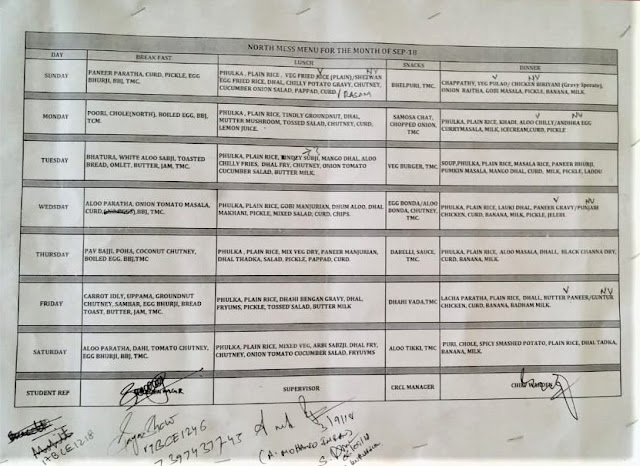 NORTH MESS MENU FOR THE MONTH OF SEP-18
DAY BREAK FAST LUNCH SNACKS DINNER
SUNDAY
PANEER PARATHA, CURD, PICKLE, EGG
BHURJI, BBJ, TMC.
PHULKA, PLAIN RICE, VEG FRIED RICE (PLAIN)/SHEZWAN
EGG FRIED RICE, DHAL, CHILLY POTATO GRAVY, CHUTNEY,
CUCUMBER ONION SALAD, PAPPAD, CURD / RASAM
V NV
BHELPURI, TMC.
V NV
CHAPPATHY, VEG PULAO/ CHICKEN BIRIYANI (Gravy Sperate),
ONION RAITHA, GOBI MASALA, PICKLE, BANANA, MILK.
MONDAY
POORI, CHOLE(NORTH), BOILED EGG, BBJ,
TCM.
PHULKA, PLAIN RICE, TINDLY GROUNDNUT, DHAL,
MUTTER MUSHROOM, TOSSED SALAD, CHUTNEY, CURD,
LEMON JUICE.
SAMOSA CHAT,
CHOPPED ONION,
TMC
V NV
PHULKA, PLAIN RICE, KHADI, ALOO CHILLY/ANDHRA EGG
CURRYMASALA, MILK, ICECREAM,CURD, PICKLE
TUESDAY
BHATURA, WHITE ALOO SABJI, TOASTED
BREAD, OMLET, BUTTER, JAM, TMC.
PHULKA, PLAIN RICE, SUBJI, MANGO DHAL, ALOO
CHILLY FRIES, DHAL FRY, CHUTNEY, ONION TOMATO
CUCUMBER SALAD, BUTTER MILK.
VEG BURGER, TMC.
SOUP,PHULKA, PLAIN RICE, MASALA RICE, PANEER BHURJI,
PUMKIN MASALA, MANGO DHAL, CURD, MILK, PICKLE, LADDU
WEDSDAY
ALOO PARATHA, ONION TOMATO MASALA,
CURD, BBJ, TMC.
PHULKA, PLAIN RICE, GOBI MANJURIAN, DHUM ALOO, DHAL
MAKHANI, PICKLE, MIXED SALAD, CURD, CRIPS.
EGG BONDA/ALOO
BONDA, CHUTNEY,
TMC.
V NV
PHULKA, PLAIN RICE, LAUKI DHAL, PANEER GRAVY/PUNJABI
CHICKEN, CURD, BANANA, MILK, PICKLE, JELEBI.
THURSDAY
PAV BAJJI, POHA, COCONUT CHUTNEY,
BOILED EGG, BBJ,TMC
PHULKA, PLAIN RICE, MIX VEG DRY, PANEER MANJURIAN,
DHAL THADKA, SALAD, PICKLE, PAPPAD, CURD.
DABELLI, SAUCE,
TMC.
PHULKA, PLAIN RICE, ALOO MASALA, DHALL, BLACK CHANNA DRY,
CURD, BANANA, MILK.
FRIDAY
CARROT IDLY, UPPAMA, GROUNDNUT
CHUTNEY, SAMBAR, EGG BHURJI, BREAD
TOAST, BUTTER, JAM, TMC.
PHULKA, PLAIN RICE, DHAHI BENGAN GRAVY, DHAL,
FRYUMS, PICKLE, TOSSED SALAD, BUTTER MILK
DHAHI VADA,TMC
V NV
LACHA PARATHA, PLAIN RICE, DHALL, BUTTER PANEER/GUNTUR
CHICKEN, CURD, RICE, BANANA, BADHAM MILK.
SATURDAY
ALOO PARATHA, DAHI, TOMATO CHUTNEY,
EGG BHURJI, BBJ, TMC.
PHULKA, PLAIN RICE, MIXED VEG, ARBI SABZJI, DHAL FRY,
CHUTNEY, ONION TOMATO CUCUMBER SALAD, FRYUYMS
ALOO TIKKI, TMC
PURI, CHOLE, SPICY SMASHED POTATO, PLAIN RICE, DHAL TADKA,
BANANA, MILK.
STUDENT REP SUPERVISOR CRCL MANAGER CHIEF WARDEN
17BCE1218
17BCE1246
3/9/18